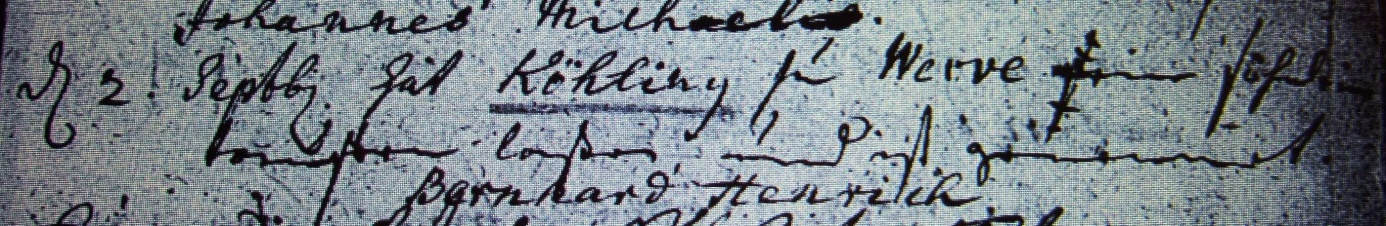 Johannes Michaelis.
d 2. Septbr. hat Köhling zu Werve sein söhnlein
tauffen laßen, und ist genennet
Bernhard Henrich